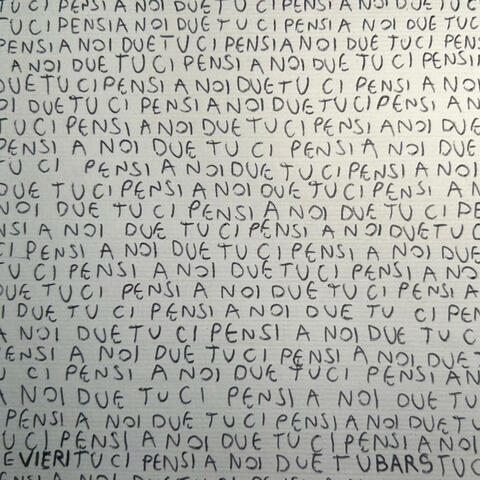 TU CI PENSI A NOI DUE TU CI PENSI A NOI DUE TU C
TU CI PENSI A NOI DUE TU CI PENSI A NOI DUE TUC
PENSI A NOI DUE TU CI PENSI A NOI DUE TU CI PENS
A NOI DUE TU CI PENSI A NOI DUE TU CI PENSI
DUE TU CI PENSI A NOI DUE TU CI PENSI A NO
OI DUE TU CI PENSI A NOI DUE TU CI PENSI AN
TU CI PENSI A NOI DUE TU CI PENSI A NOI DUE
PENSI A NOI DUE TU CI PENSI A NOI DUE
TU CI PENSI A NOI DUE TU CI PENSI A NOI
DUE TU CI PENSI A NOI DUE TU CI PENSI A N
NOI DUE TU CI PENSI A NOI DUE TU CI PE
NSI A NOI DUE TU CI PENSI A NOI DUE TU C
CI PENSI A NOI DUE TU CI PENSI A NOI DUE
TU CI PENSI A NOI DUE TU CI PENSI A NO
DUE TU CI PENSI A NOI DUE TU CI PENSI A
NOI DUE TU CI PENSI A NOI DUE TU CI PEN
A NOI DUE TU CI PENSI A NOI DUE TU C
PENSI A NOI DUE TU CI PENSI A NOI DUE T
U CI PENSI A NOI DUE TU CI PENSI AN
A NOI DUE TU CI PENSI A NOI DUE TU
PENSI A NOI DUE TU CI PENSI A NOI DUE TU
U CI PENSI A NOI DUE TU CI PENSI A NOI
EVIERITU CI PENSI A NOI DUE TUBARSTUC